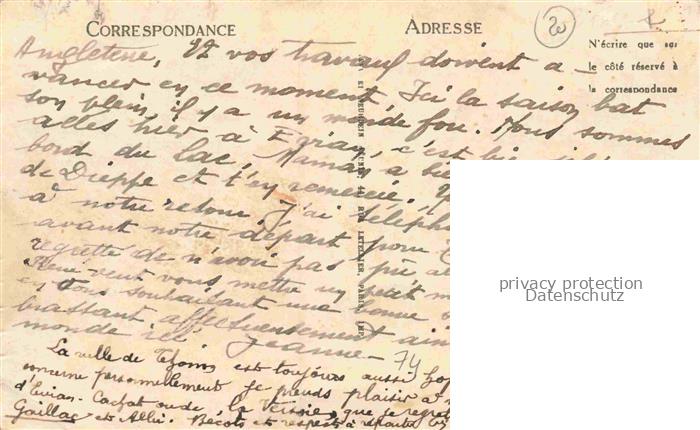 CORRESPONDANCE
ADRESSE
20
N'écrire que sur
le côté réservé à
la correspondance
Angleterre, Et vos travaux doivent a -
vancer en ce moment, Ici la saison bat
son plein, il y a un monde fou. Nous sommes
allés hier à Evian, c'est bien
bord du Lac, Maman a
de Dieppe et t'en remercie.
à notre retour j'ai
avant notre départ pour
regrette de n'avoir pas pu
René veut vous mettre un petit
en vous souhaitant une bonne
brassant affectueusement ainsi
monde ici Jeanne-
74
La ville de Thonon est toujours aussi
concerne personnellement je prends plaisir à
d'Evian-Cachat ou de la Versoie, que je
Gaillac et Albi. Bécots et respects à
LETELLIER, PARIS, IMP.
privacy protection
Datenschutz